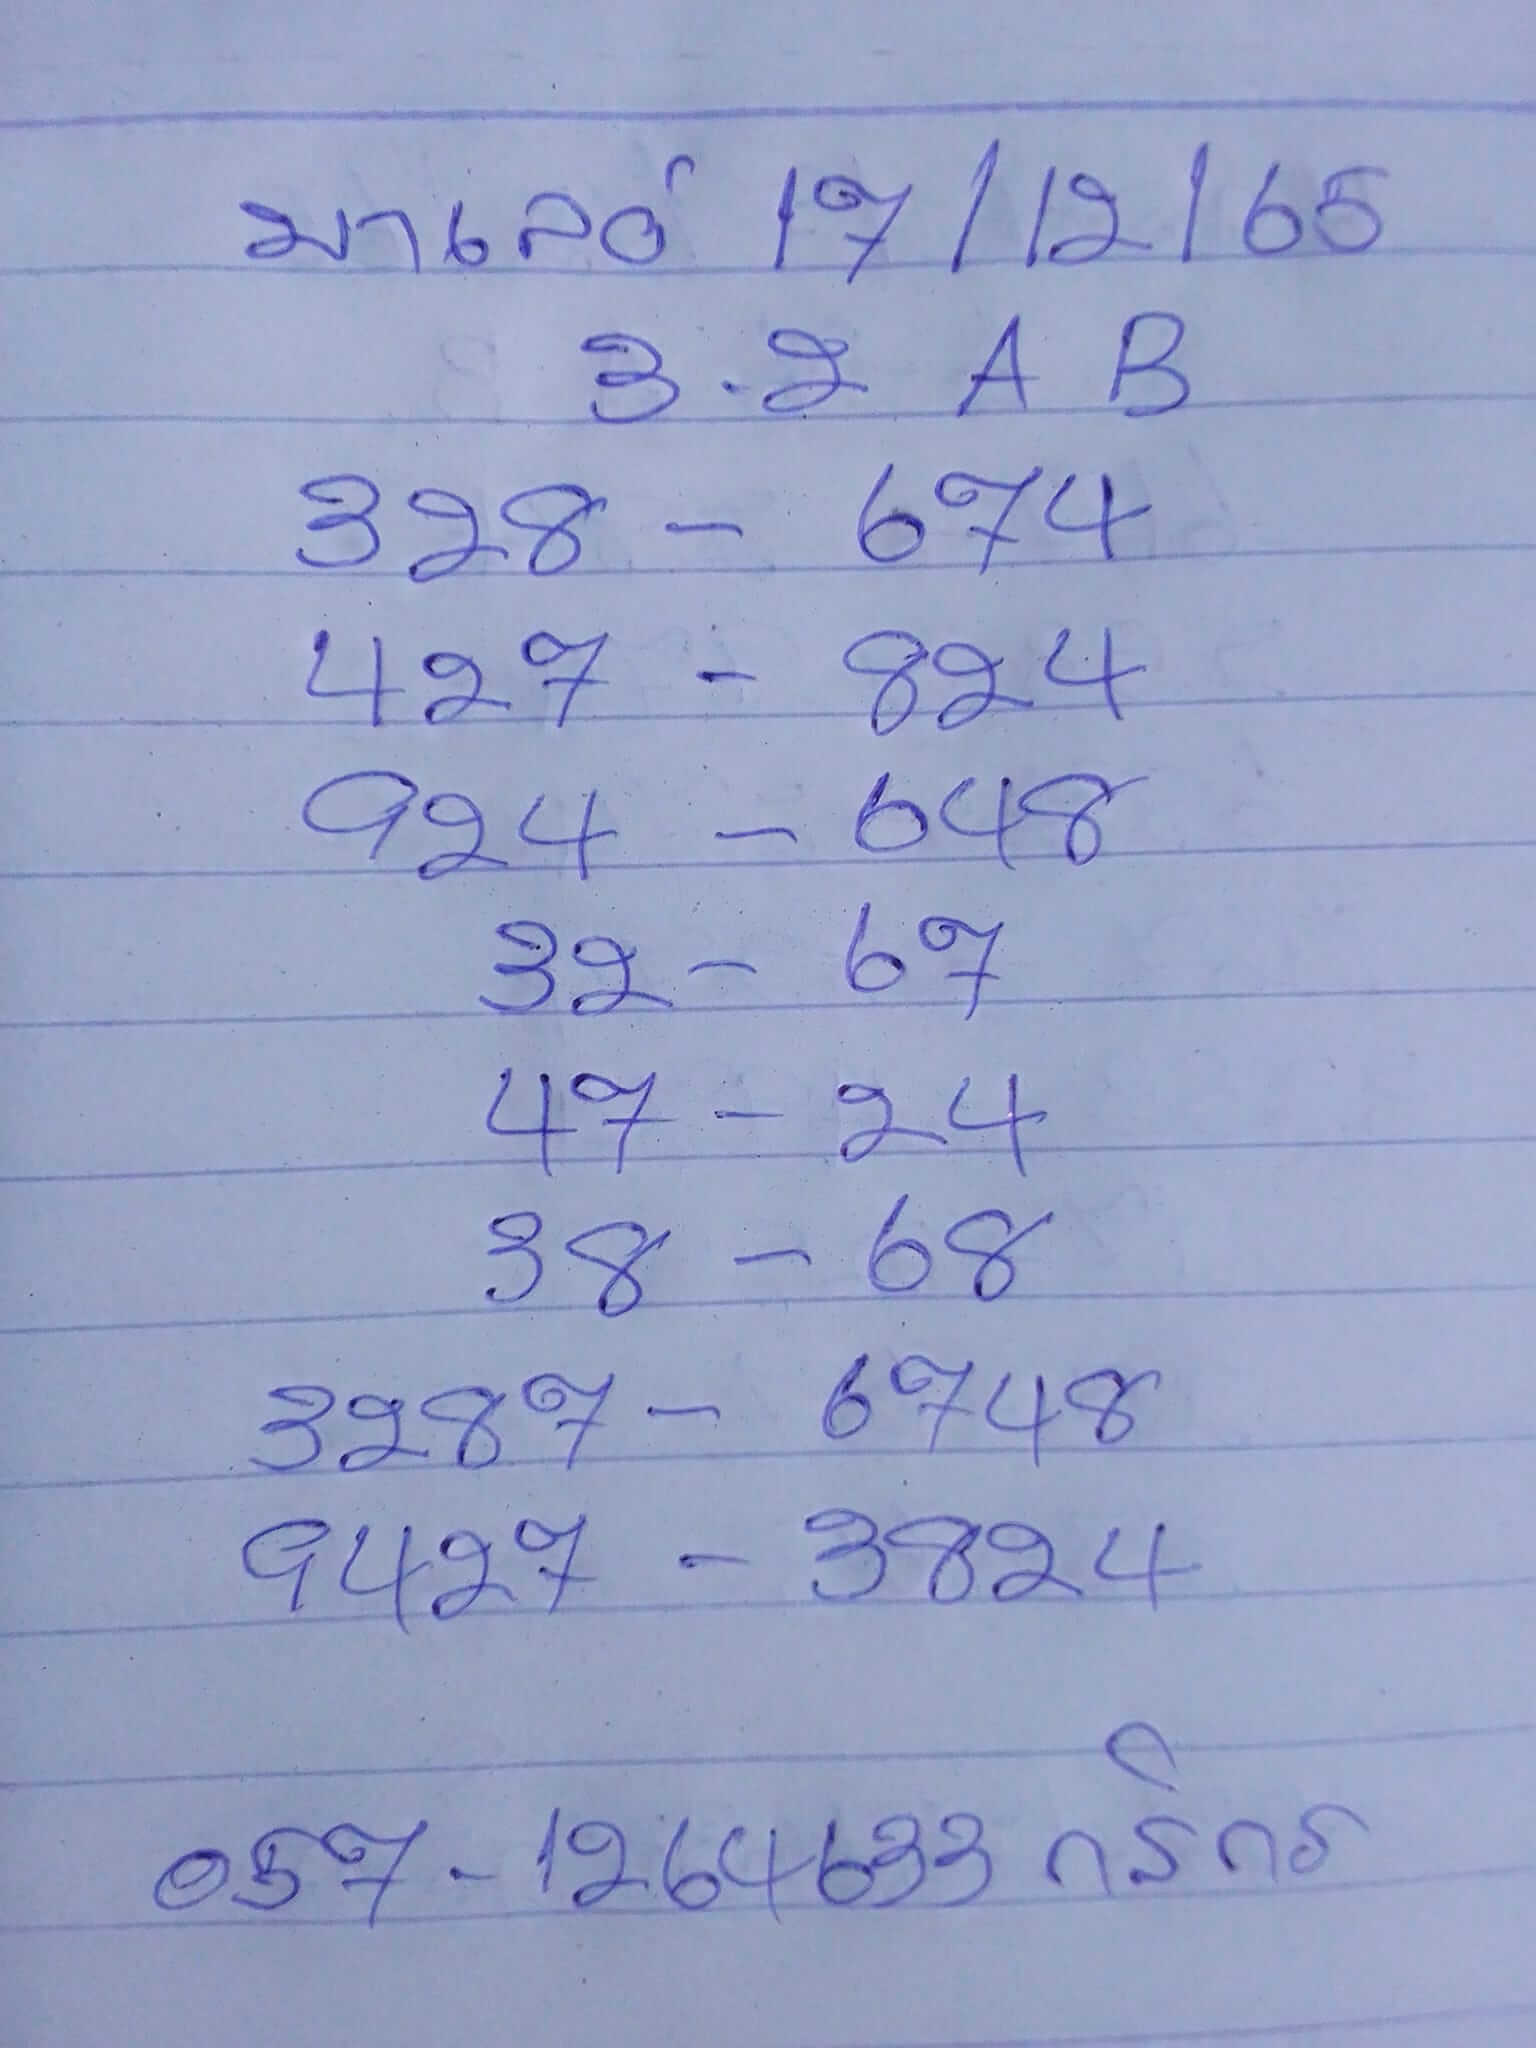 มาเลย์ 17/12/65
3.2 A B
328 - 674
427 - 824
924 - 648
32 - 67
47 - 24
38 - 68
3287 - 6748
9427 - 3824
057-1264633 กรกร